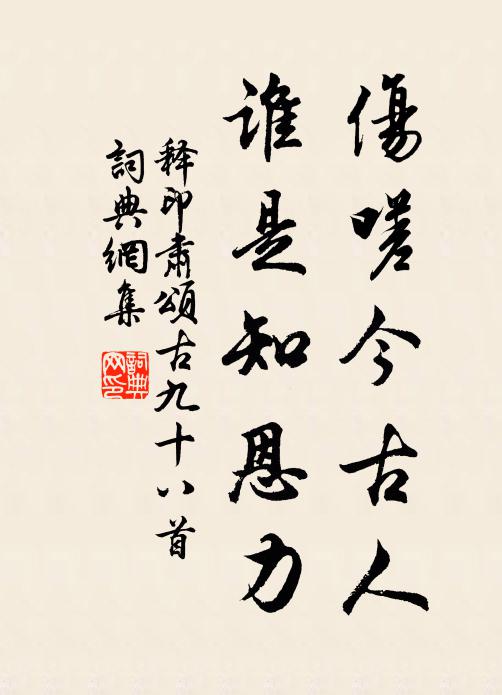 傷嗟今古人
誰是知恩力
释印肅頌古九十八首
詞典網集
詞典網印